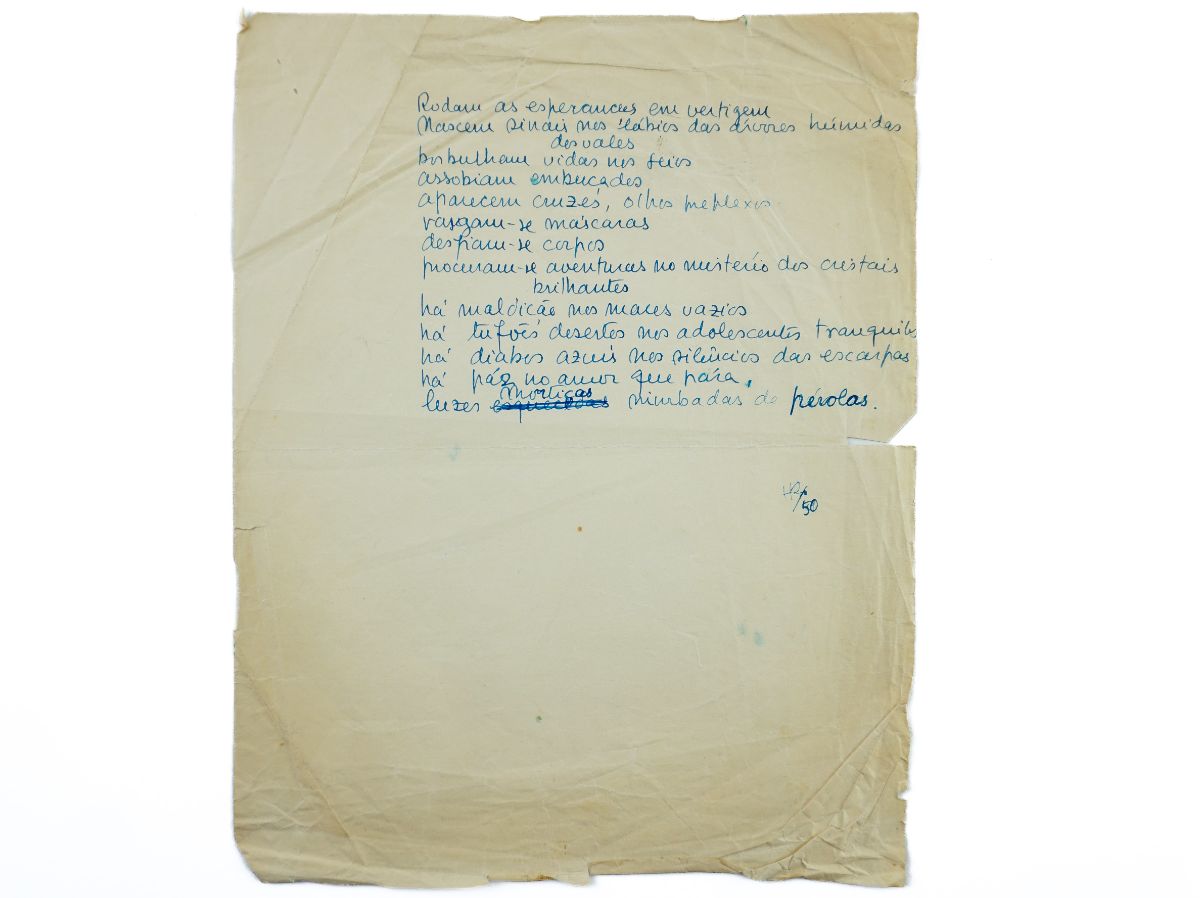 Rodam as esperances em vertigem
Nascem sinais nos lábios das árvores húmidas
dos vales
borbulham vidas nos seios
assobiam embuçados
aparecem cruzes, olhos perplexos
rasgam-se máscaras
desfiam-se corpos
procuram-se aventuras no mistério dos cristais
brilhantes
há maldição nos mares vazios
há tufões desertos nos adolescentes tranquilos
há diabos azuis nos silêncios das escarpas
há páz no amor que pára,
mortiças
luzes esquecidas nimbadas de pérolas.
50